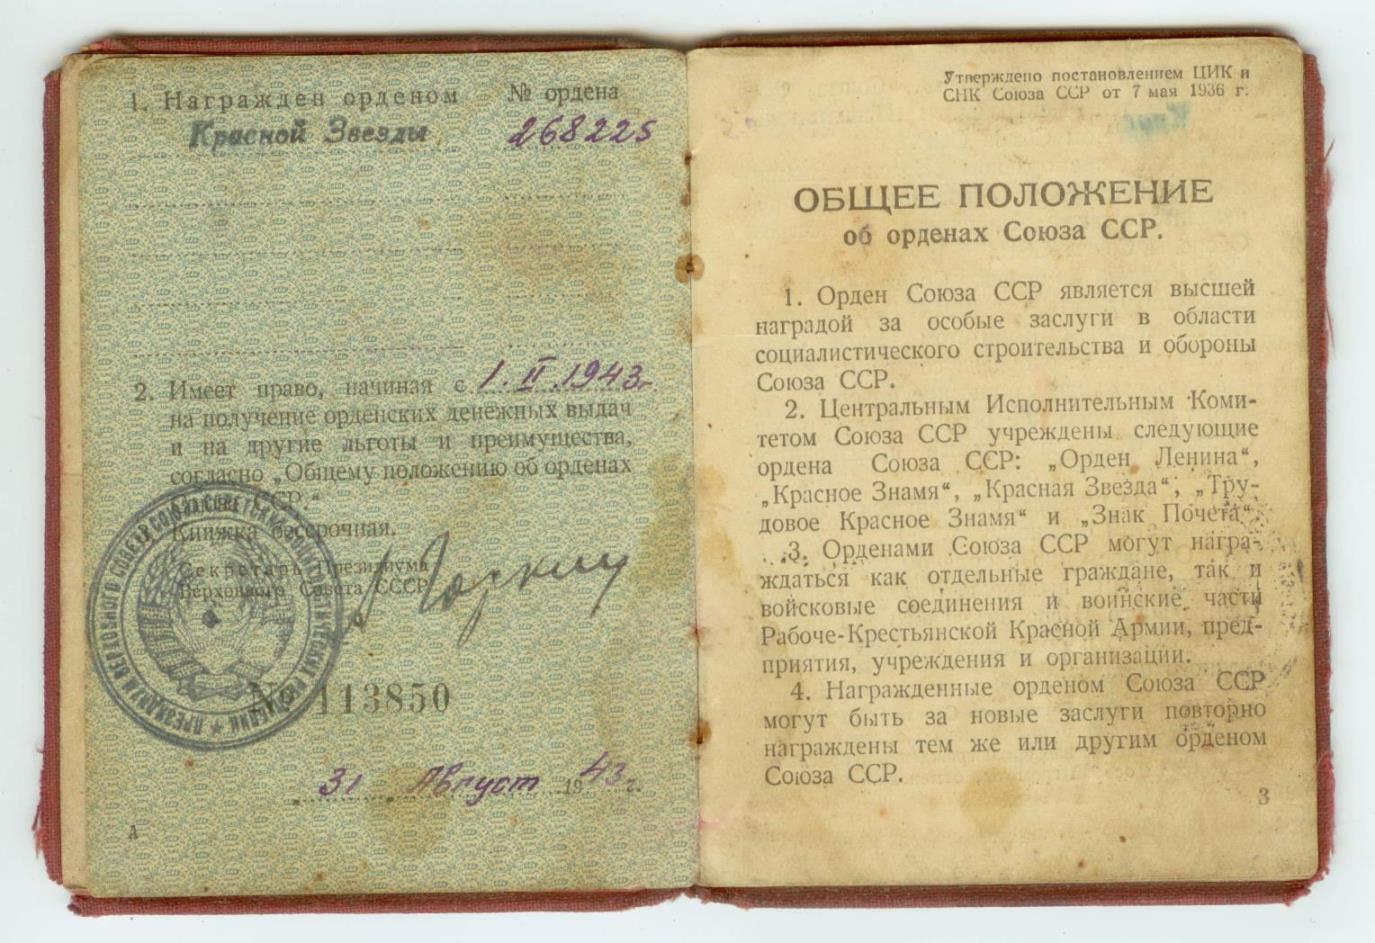 1. Награжден орденом № ордена
Красной Звезды 268225
2. Имеет право, начиная с 1. II. 1943 г.
на получение орденских денежных выдач
и на другие льготы и преимущества,
согласно „Общему положению об орденах
ССР.“
Книжка бессрочная.
Секретарь Президиума
Верховного Совета СССР
А Горкин
№ 113850
31 Август 1943 г.
А
Утверждено постановлением ЦИК и
СНК Союза ССР от 7 мая 1936 г.
ОБЩЕЕ ПОЛОЖЕНИЕ
об орденах Союза ССР.
1. Орден Союза ССР является высшей
наградой за особые заслуги в области
социалистического строительства и обороны
Союза ССР.
2. Центральным Исполнительным Коми-
тетом Союза ССР учреждены следующие
ордена Союза ССР: „Орден Ленина“,
„Красное Знамя“, „Красная Звезда“, „Тру-
довое Красное Знамя“ и „Знак Почета“.
3. Орденами Союза ССР могут награ-
ждаться как отдельные граждане, так и
войсковые соединения и воинские части
Рабоче-Крестьянской Красной Армии, пред-
приятия, учреждения и организации.
4. Награжденные орденом Союза ССР
могут быть за новые заслуги повторно
награждены тем же или другим орденом
Союза ССР.
3